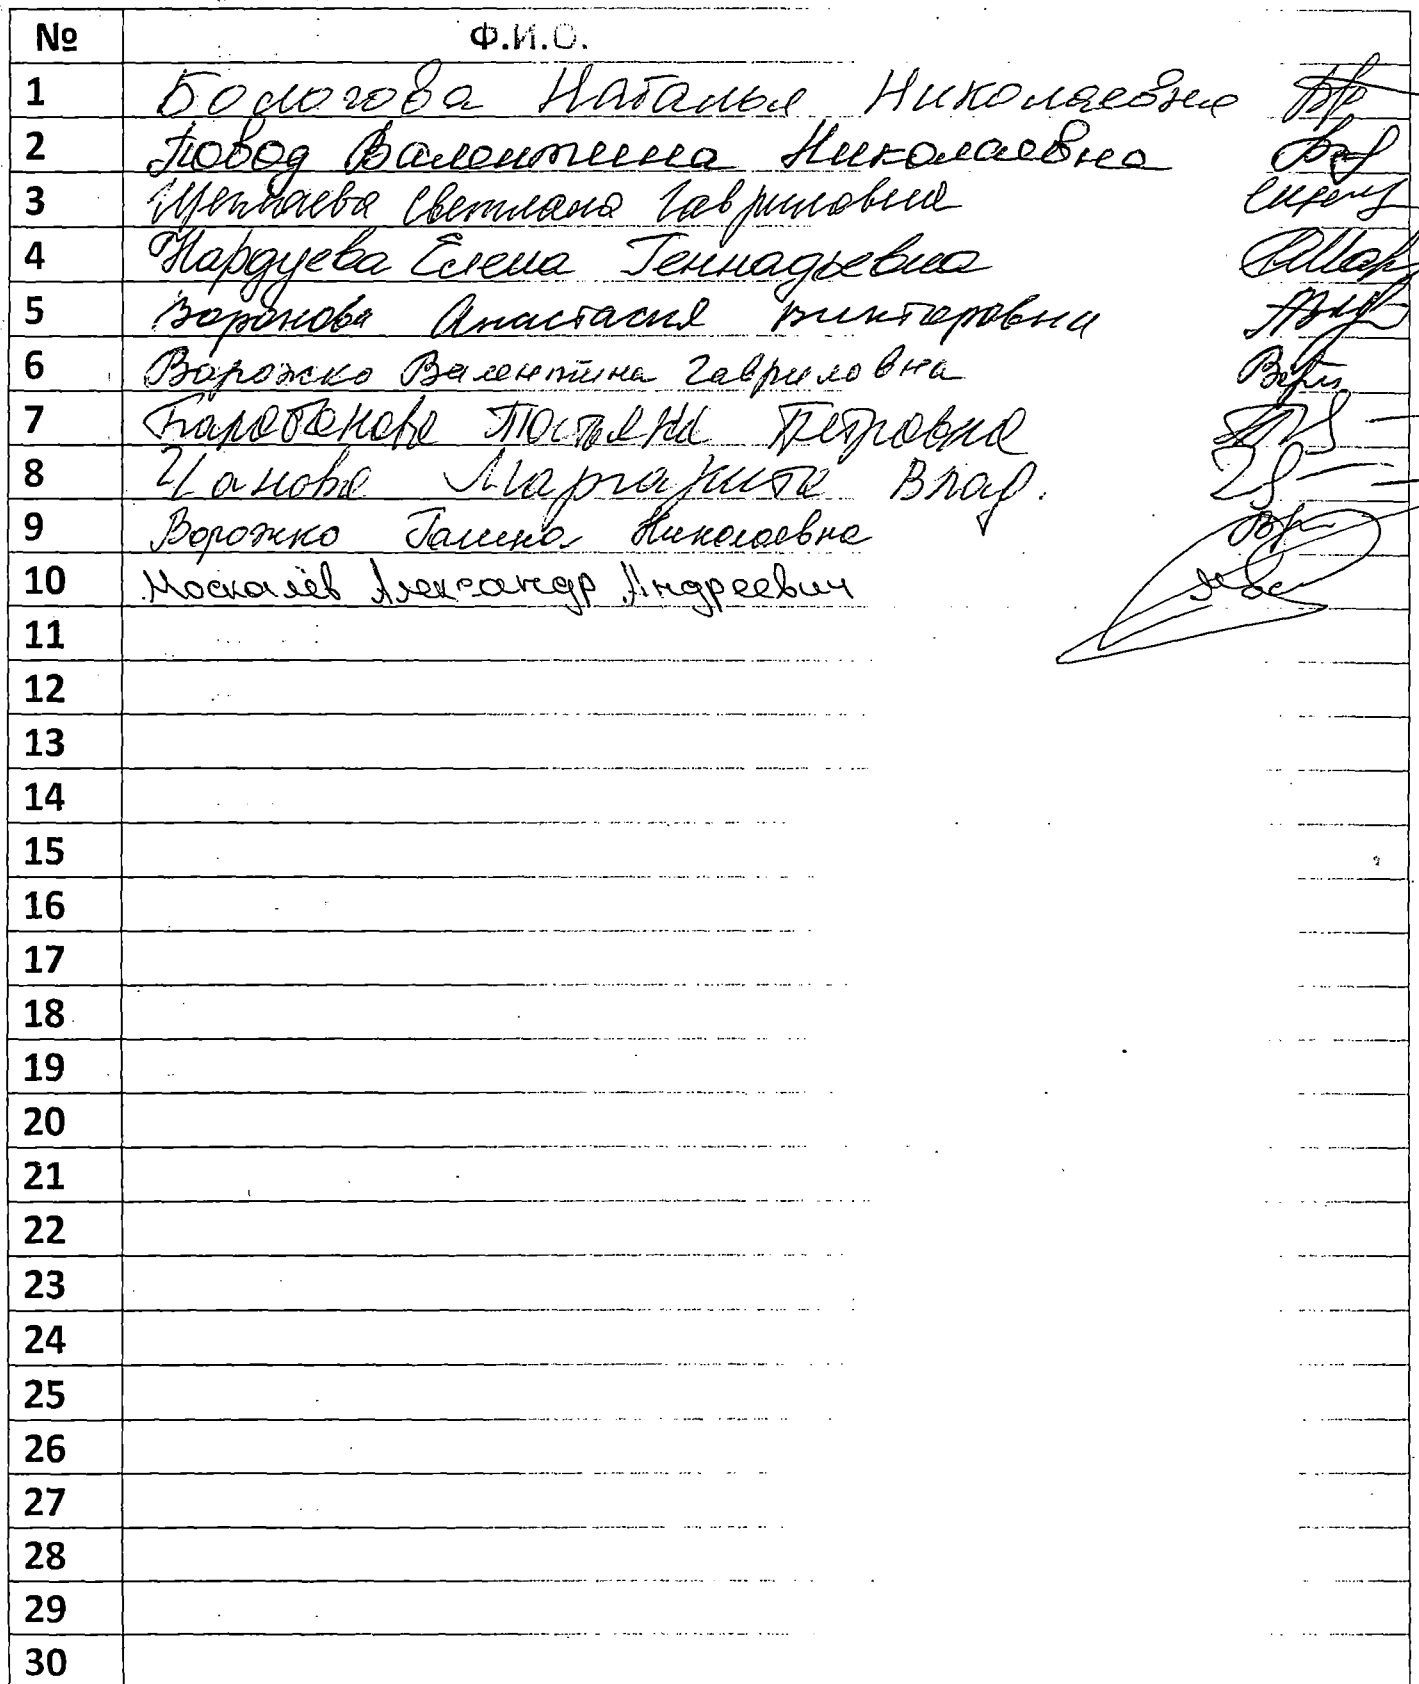 № Ф.И.О.
1 Бологова Наталья Николаевна
2 Повод Валентина Николаевна
3 Светлана Гавриловна
4 Елена Геннадьевна
5 Воронова Анастасия Викторовна
6 Ворожко Валентина Гавриловна
7 Карабанова Татьяна Петровна
8 Маргарита Влад.
9 Ворожко Галина Николаевна
10 Москалёв Александр Андреевич
11
12
13
14
15
16
17
18
19
20
21
22
23
24
25
26
27
28
29
30